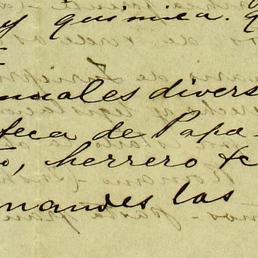 y química.
nuales divers
teca de Papa-
to, herrero &c
nandes las